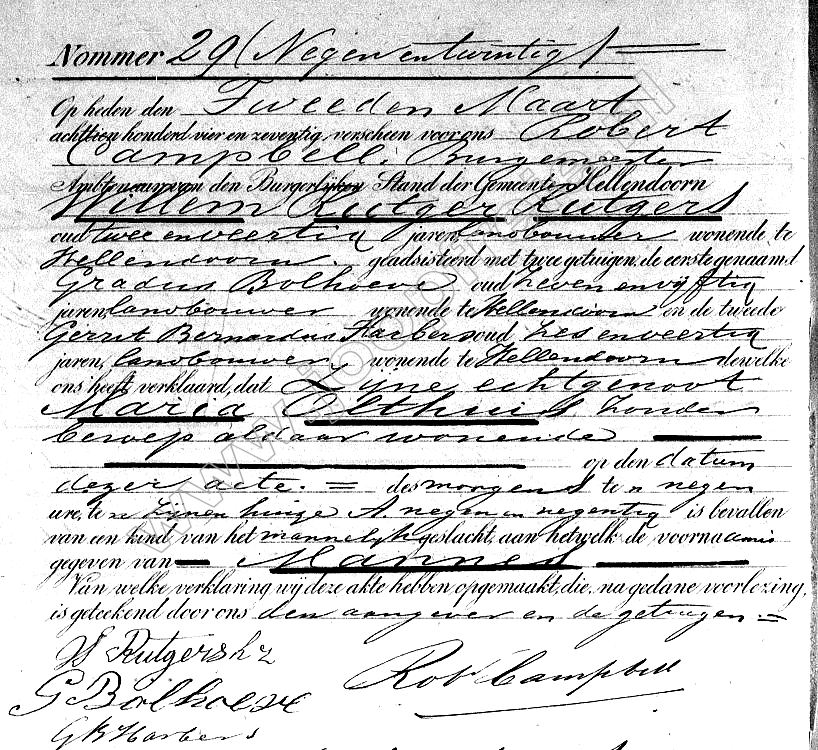 Nommer 29 (Negen en twintig)
Op heden den Tweeden Maart
achttien honderd vier en zeventig, verscheen voor ons Robert
Campbell, Burgemeester
Ambtenaar van den Burgerlijken Stand der Gemeente Hellendoorn
Willem Rutger Rutgers
oud twee en veertig jaren, landbouwer wonende te
Hellendoorn. geadsisteerd met twee getuigen, de eerste genaamd
Gradus Bolhoeve oud zeven en vijftig
jaren, landbouwer wonende te Hellendoorn en de tweede
Gerrit Bernardus Harbers oud zes en veertig
jaren, landbouwer, wonende te Hellendoorn dewelke
ons heeft verklaard, dat Zyne echtgenoot
Maria Olthuis, zonder
beroep aldaar wonende
op den datum
dezer acte. = des morgens te n negen
ure, te zynen huize A. negen en negentig is bevallen
van een kind, van het mannelijk geslacht, aan hetwelk de voornaamis
gegeven van Mannes
Van welke verklaring wij deze akte hebben opgemaakt, die, na gedane voorlezing,
is geteekend door ons den aangever en de getuigen =
W Rutgers hz
Rob Campbell
G Bolhoeve
G B Harbers
www.